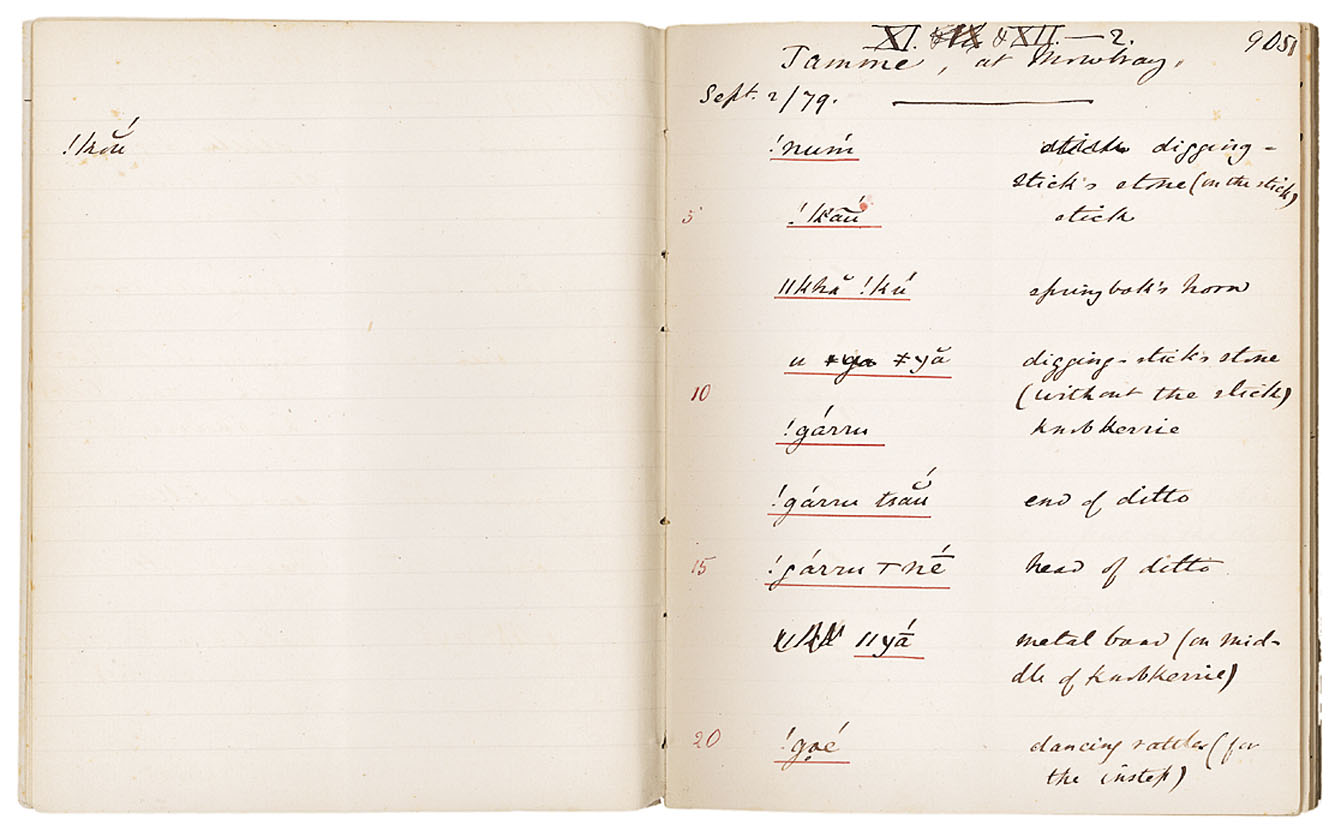 !kãŭ́
XI. & XII.—2. 9051
Tamme, at Mowbray,
Sept. 2/79.
!num̄́ digging-
stick's stone (on the stick)
5 !kãū́ stick
ǁkhă !kú springbok's horn
u ǂyă digging-stick's stone
10 (without the stick)
!gárru knobkerrie
!gárru tsãŭ́ end of ditto
15 !gárru ⊤nḗ head of ditto
ǁyā́ metal band (on mid-
dle of knobkerrie)
20 !gọé dancing rattles (for
the instep)